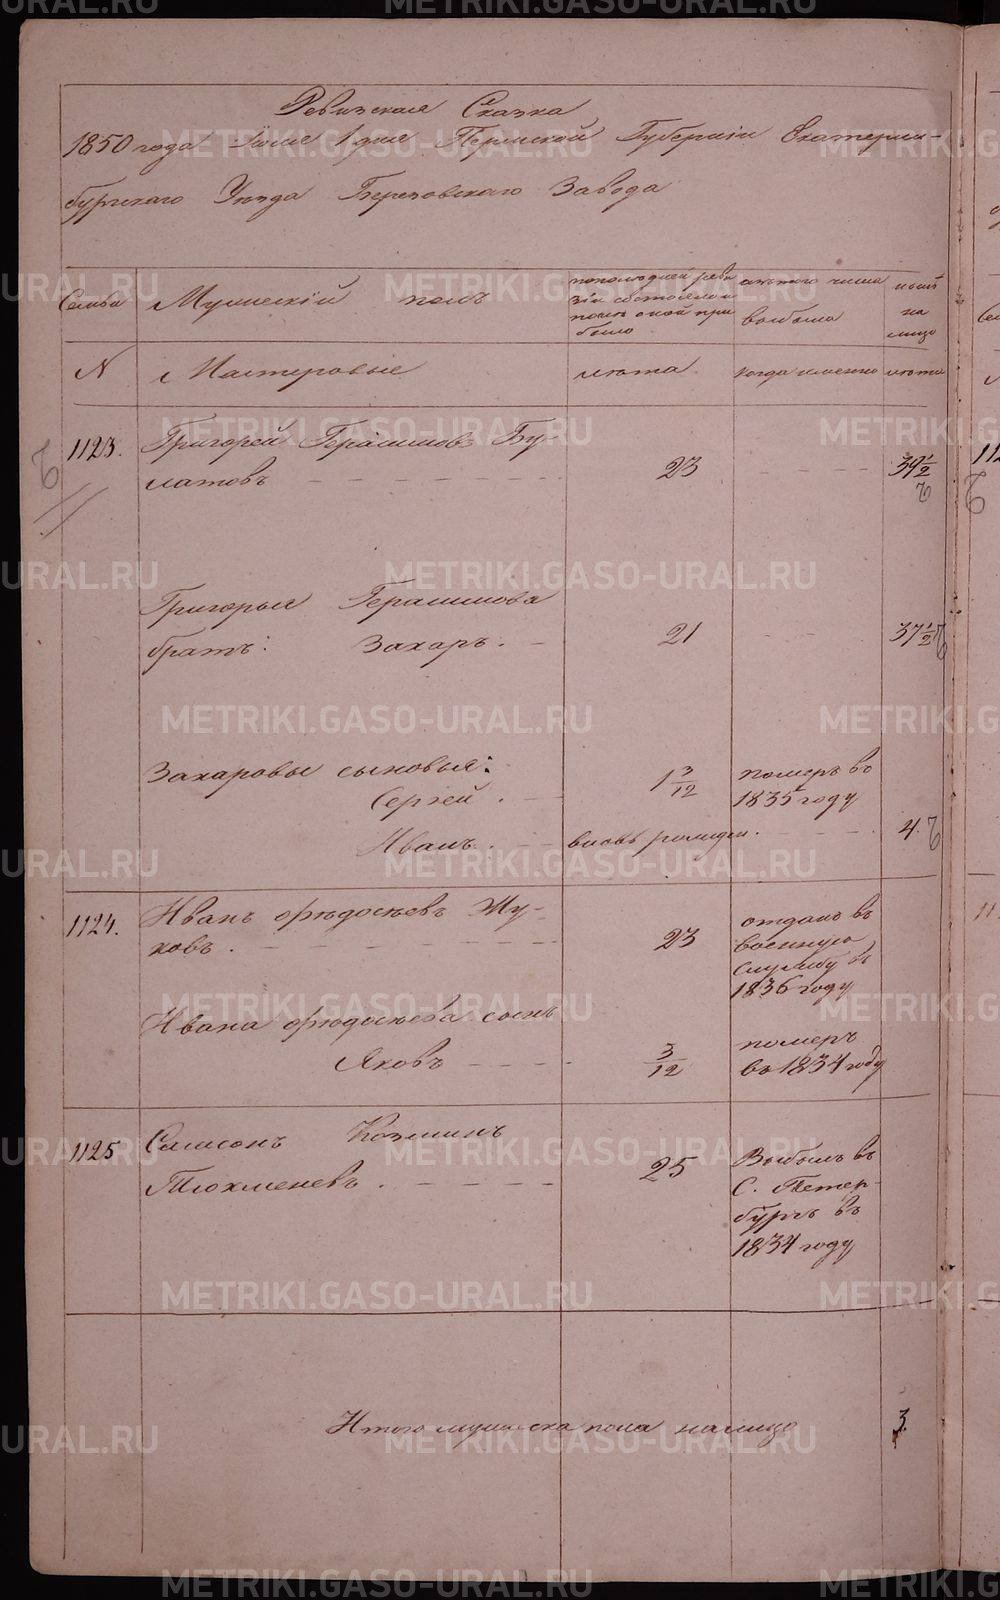 Ревизская Сказка
1850 года Июня 1 дня Пермской Губернiи Екатерин-
бургскаго Уѣзда Березовскаго Завода
Семьи
Мужескiй полъ
по последней реви
зiи состояло и
после оной при
было
изъ того числа
выбыло
нынѣ
на
лицо
N
Мастеровые
лѣта
когда именно
лѣта
1123.
Григорей Герасимовъ Бу-
латовъ
23
39 1/2
Григорья Герасимова
братъ: Захаръ.
21
37 1/2
Захаровы сыновья:
Сергей.
1 3/12
померъ во
1835 году
Иванъ.
вновь рожден.
4.
1124.
Иванъ Ѳедосѣевъ Жу-
ковъ.
23
отданъ въ
военную
службу въ
1836 году
Ивана Ѳедосѣева сынъ
Яковъ
3/12
померъ
въ 1834 году
1125
Самсонъ Козминъ
Тюхменевъ.
25
Выбылъ въ
С. Петер-
бургъ въ
1834 году
Итого мужеска пола налицо
3.
METRIKI.GASO-URAL.RU